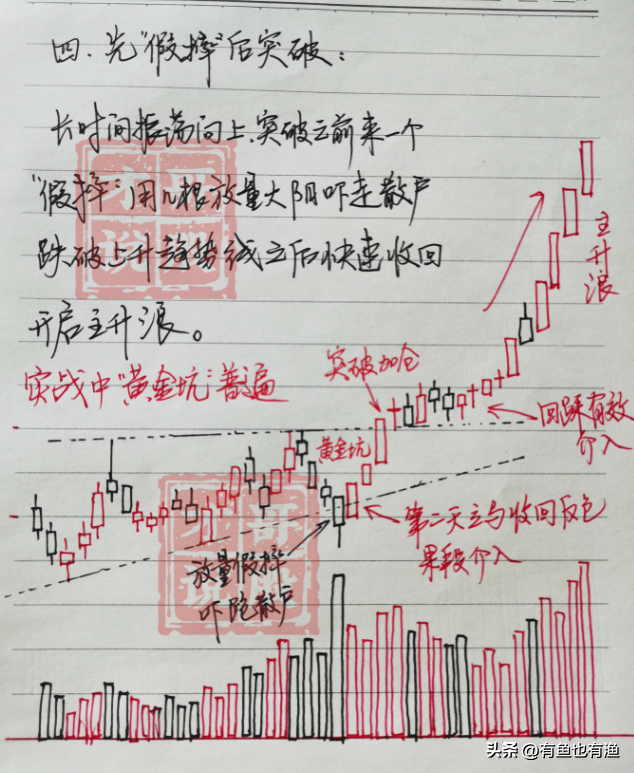 四.先"假摔"后突破:
长时间振荡向上,突破之前来一个
"假摔"用几根放量大阴吓走散户
跌破上升趋势线之后快速收回
开启主升浪。
实战中"黄金坑"普遍
主升浪
突破加仓
回踩有效
介入
黄金坑
第二天立马收回反包
果断介入
放量假摔
吓跑散户
头条 @有鱼也有渔